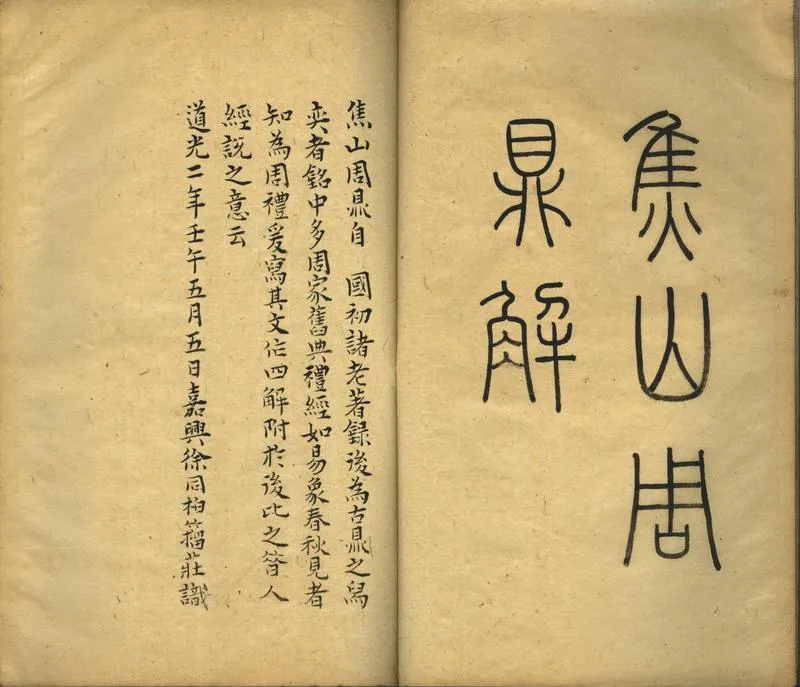 焦山周
鼎解
焦山周鼎自　國初諸老著録後為古鼎之舄
奕者銘中多周家舊典禮經如易象春秋見者
知為周禮爰寫其文作四解附於後比之昔人
經說之意云
道光二年壬午五月五日嘉興徐同柏籀莊識